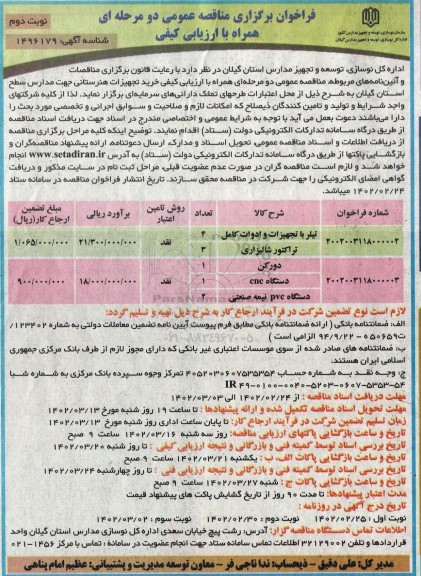 فراخوان برگزاری مناقصه عمومی دو مرحله ای
همراه با ارزیابی کیفی
نوبت دوم
شناسه آگهی: ۱۴۹۶۱۷۹
اداره کل نوسازی، توسعه و تجهیز مدارس استان گیلان در نظر دارد با رعایت قانون برگزاری مناقصات
و آئین‌نامه‌های مربوطه، مناقصه عمومی دو مرحله‌ای همراه با ارزیابی کیفی خرید تجهیزات هنرستانی جهت مدارس سطح
استان گیلان به شرح ذیل از محل اعتبارات طرح‌های تملک دارائی‌های سرمایه‌ای برگزار نماید. لذا از کلیه شرکتهای
واجد شرایط و تولید و تامین کنندگان ذیصلاح که امکانات لازم و صلاحیت و سوابق اجرائی و تخصصی مورد بحث را
دارا می‌باشند دعوت بعمل می آید با توجه به شرایط عمومی و اختصاصی مندرج در اسناد جهت دریافت اسناد مناقصه
از طریق درگاه سامانه تدارکات الکترونیکی دولت (ستاد) اقدام نمایند. توضیح اینکه کلیه مراحل برگزاری مناقصه
از دریافت اطلاعات و اسناد مناقصه عمومی، تحویل اسناد و مدارک، ارسال دعوتنامه، ارائه پیشنهاد مناقصه‌گران و
بازگشایی پاکتها از طریق درگاه سامانه تدارکات الکترونیکی دولت (ستاد) به آدرس www.setadiran.ir انجام
خواهد شد و لازم است مناقصه گران در صورت عدم عضویت قبلی، مراحل ثبت نام در سایت مذکور و دریافت
گواهی امضای الکترونیکی را جهت شرکت در مناقصه محقق سازند. تاریخ انتشار فراخوان مناقصه در سامانه ستاد
۱۴۰۲/۰۲/۲۴ میباشد.
شماره فراخوان شرح کالا تعداد روش تامین اعتبار برآورد ریالی مبلغ تضمین ارجاع کار(ریال)
۲۰۰۲۰۰۳۱۱۸۰۰۰۰۰۲ تیلر با تجهیزات و ادوات کامل ۴ نقد ۲۱/۳۰۰/۰۰۰/۰۰۰ ۱/۰۶۵/۰۰۰/۰۰۰
تراکتور شالیزاری ۳
۲۰۰۲۰۰۳۱۱۸۰۰۰۰۰۳ دورکن ۱ نقد ۱۸/۰۰۰/۰۰۰/۰۰۰ ۹۰۰/۰۰۰/۰۰۰
دستگاه cnc ۱
دستگاه pvc نیمه صنعتی ۲
لازم است نوع تضمین شرکت در فرآیند ارجاع کار به شرح ذیل تهیه و تسلیم گردد:
الف: ضمانتنامه بانکی ( ارائه ضمانتنامه بانکی مطابق فرم پیوست آیین نامه تضمین معاملات دولتی به شماره ۱۲۳۴۰۲/
ت۵۰۶۵۹ه - ۹۴/۹/۲۲ الزامی است )
ب: ضمانتنامه های صادر شده از سوی موسسات اعتباری غیر بانکی که دارای مجوز لازم از طرف بانک مرکزی جمهوری
اسلامی ایران هستند.
ج: وجه نقد به شماره حساب ۴۰۵۲۰۳۰۶۰۷۵۳۵۳۵۴ تمرکز وجوه سپرده بانک مرکزی به شماره شبا
IR ۴۹-۰۱۰۰-۰۰۴۰-۵۲۰۳-۰۶۰۷-۵۳۵۳-۵۴
مهلت دریافت اسناد مناقصه : از ۱۴۰۲/۰۲/۲۴ الی ۱۴۰۲/۰۳/۰۳
مهلت تحویل اسناد مناقصه تکمیل شده و ارائه پیشنهادها : تا ساعت ۱۹ روز شنبه مورخ ۱۴۰۲/۰۳/۱۳
زمان تسلیم تضمین شرکت در فرآیند ارجاع کار: تا پایان ساعت اداری روز شنبه مورخ ۱۴۰۲/۰۳/۱۳
تاریخ و ساعت بازگشایی پاکتهای ارزیابی مناقصه: روز سه شنبه ۱۴۰۲/۰۳/۱۶ ساعت ۹ صبح
تاریخ بررسی اسناد توسط کمیته فنی و بازرگانی و نتیجه ارزیابی کیفی : تا روز شنبه ۱۴۰۲/۰۳/۲۰
تاریخ و ساعت بازگشایی پاکات الف - ب: یکشنبه ۱۴۰۲/۰۳/۲۱ ساعت ۹ صبح
تاریخ بررسی اسناد توسط کمیته فنی و بازرگانی و نتیجه ارزیابی فنی : تا روز چهارشنبه ۱۴۰۲/۰۳/۲۴
تاریخ و ساعت بازگشایی پاکات ج : شنبه ۱۴۰۲/۰۳/۲۷ ساعت ۹ صبح
مدت اعتبار پیشنهادها: تا مدت ۹۰ روز از تاریخ گشایش پاکت های پیشنهاد قیمت
تاریخ درج آگهی در روزنامه :
نوبت اول : ۱۴۰۲/۰۲/۲۵ نوبت دوم : ۱۴۰۲/۰۲/۳۰ نوبت سوم : ۱۴۰۲/۰۳/۰۲
اطلاعات تماس دستگاه مناقصه گزار: آدرس: رشت پیچ خیابان سعدی اداره کل نوسازی مدارس استان گیلان واحد
قراردادها و تلفن ۳۲۱۲۹۰۰۲ اطلاعات تماس سامانه ستاد جهت انجام عضویت در سامانه : تماس با مرکز ۱۴۵۶-۰۲۱
مدیر کل: علی دقیق - ذیحساب: ندا ناجی فر - معاون توسعه مدیریت و پشتیبانی: عظیم امام پناهی